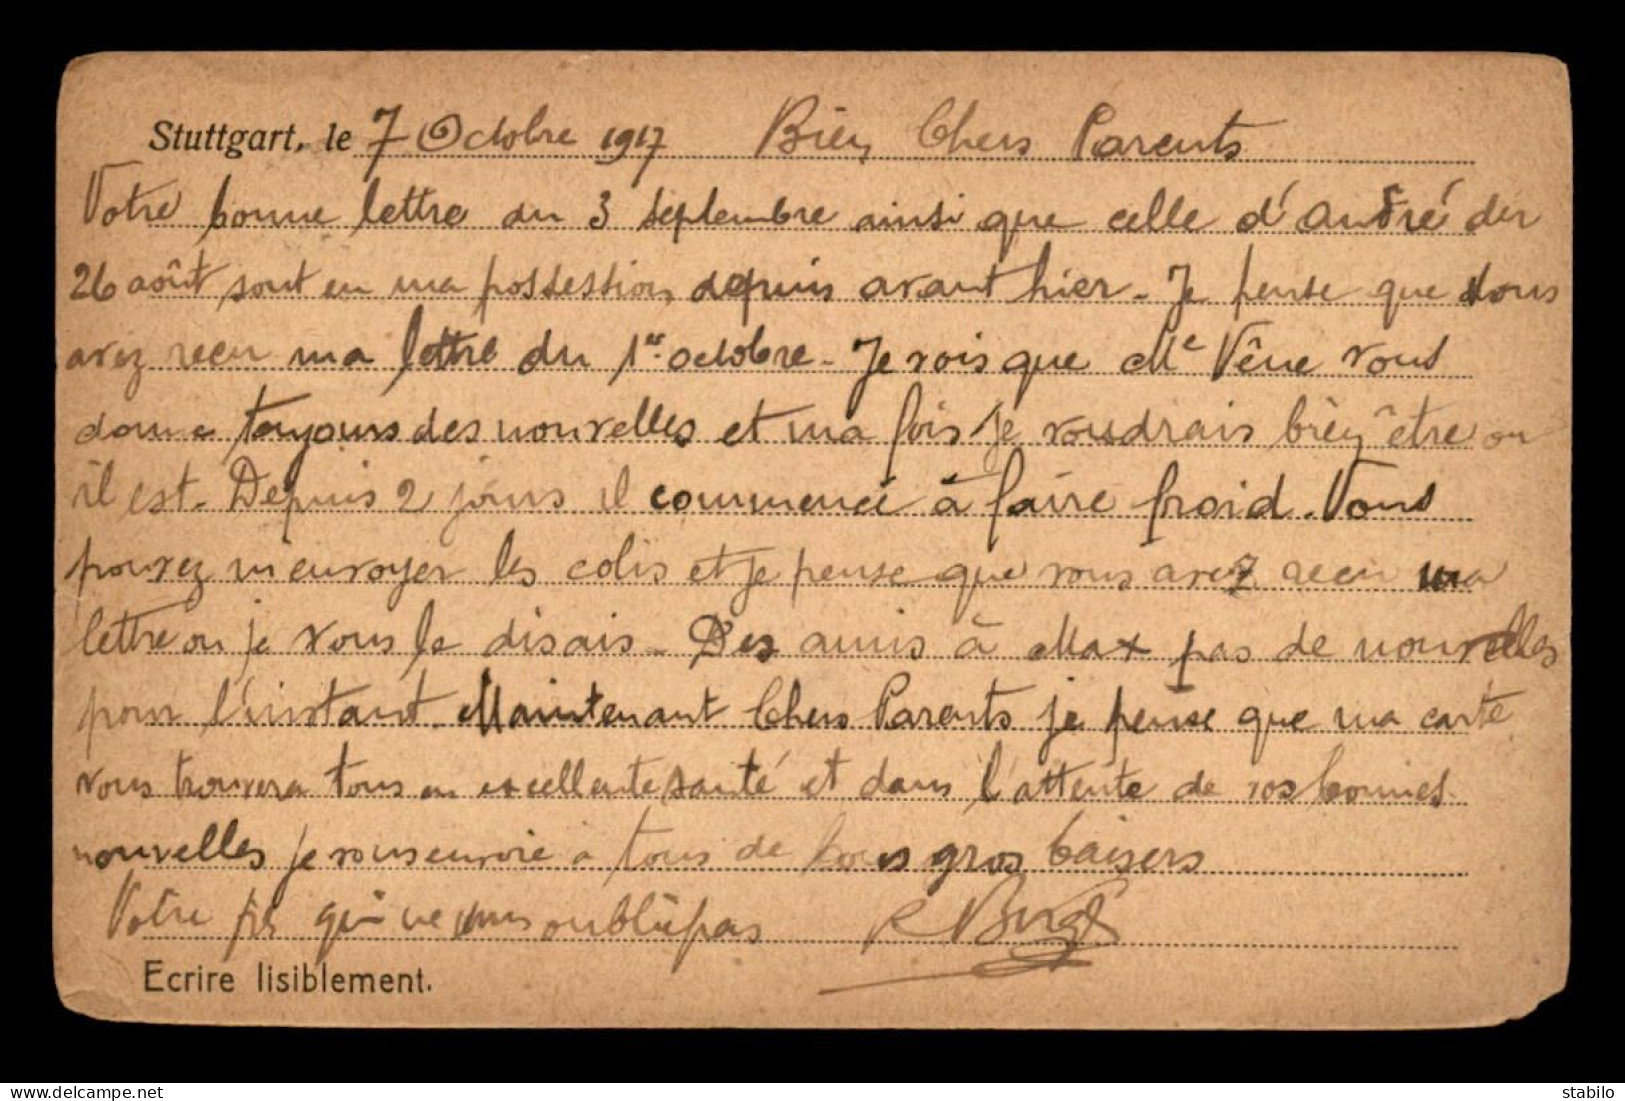 Stuttgart, le 7 Octobre 1917 Bien Chers Parents
Votre bonne lettre du 3 septembre ainsi que celle d'André du
26 août sont en ma possession depuis avant hier - Je pense que vous
avez reçu ma lettre du 1er octobre - Je vois que Me Vêve vous
donne toujours des nouvelles et ma fois je voudrais bien être ou
il est - Depuis 2 jours il commence à faire froid. Vous
pouvez m'envoyer les colis et je pense que vous avez reçu ma
lettre ou je vous le disais - Des amis à Max pas de nouvelles
pour l'instant. Maintenant Chers Parents je pense que ma carte
vous trouvera tous en excellente santé et dans l'attente de vos bonnes
nouvelles je vous envoie à tous de bons gros baisers
Votre fils qui ne vous oublie pas R
Ecrire lisiblement.
stabilo